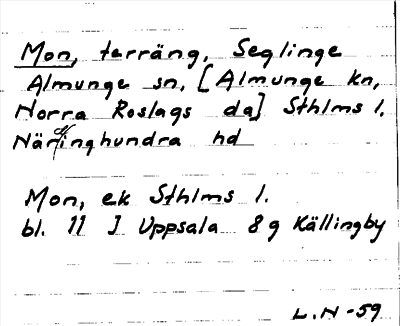 Mon, terräng, Seglinge
Almunge sn, [Almunge kn,
Norra Roslags da] Sthlms l.
Närdinghundra hd
Mon, ek Sthlms l.
bl. 11 I Uppsala 8 g Källingby
L.N-59